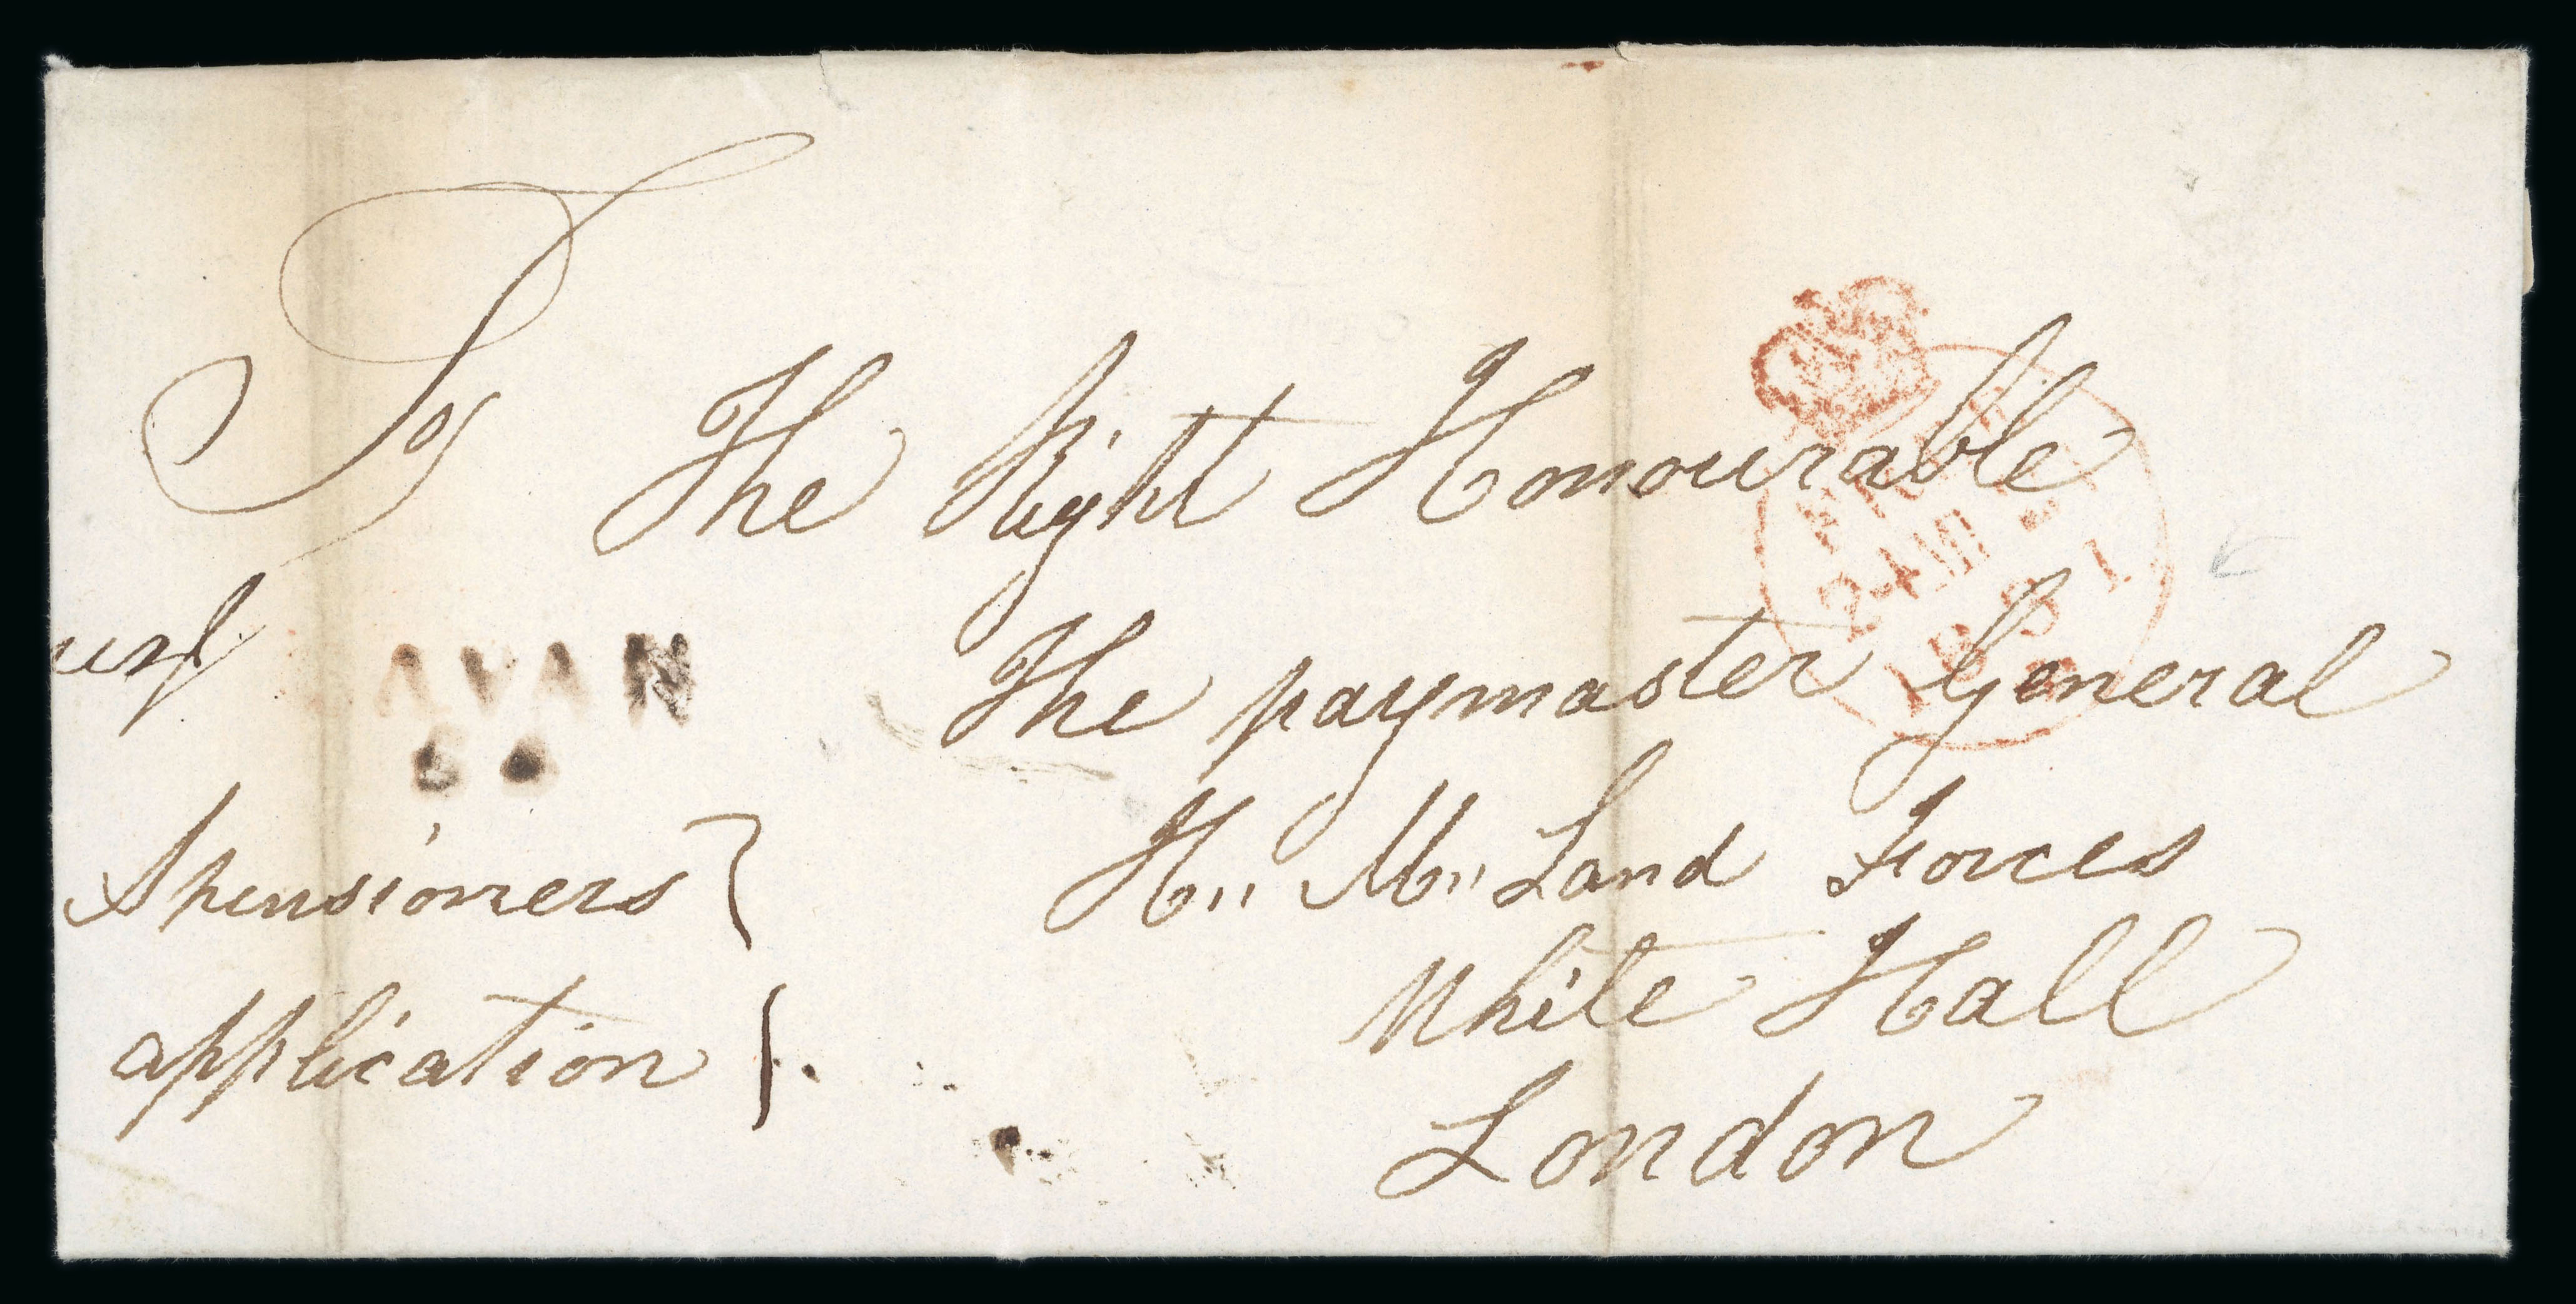 To
The Right Honourable
The paymaster General
H,, M,, Land Forces
White Hall
London
AVAN
A pensioners
application
24 MY
1831